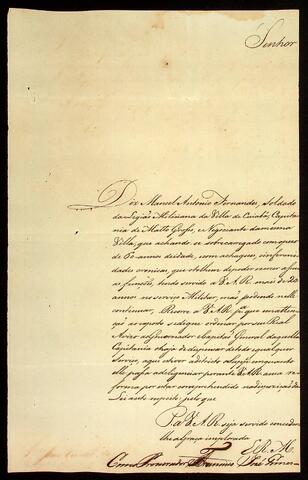 Senhor
Diz Manoel Antonio Fernandes, soldado
da Legiaõ Miliciana da Villa de Cuiabá, Capita
nia de Matto Grosso, e Negociante da mesma
Villa, que achando-se sobrecarregado com o pezo de
60 annos de idade, com achaques, e infermi
dades cronicas, que o tolhem de poder exercer as su
as funçoẽs, tendo servido a V.A.R. mais de 20
annos no serviço Militar, e naõ podendo nelle
continuar, Recorre a V.A.R. p.ª que em attten
çaõ ao exposto se digne ordenar por seu Real
Avizo ao Governador Capitaõ General daquella
Capitania o haja de dispensar de todo e qualquer
serviço,
por estar comprehendido na dispoziçaõ da
Lei a este respeito; pelo que
P. a V.A.R. seja servido conceder
lhe a graça implorada
E. R. M.
Como Procurador Francisco José